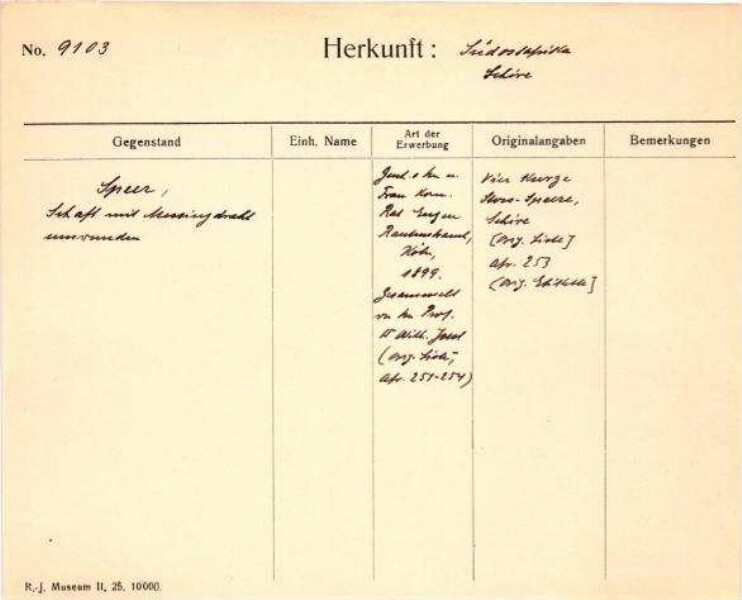 No. 9103
Herkunft: Südostafrika
Schire
Gegenstand
Einh. Name
Art der
Erwerbung
Originalangaben
Bemerkungen
Speer,
Schaft mit Messingdraht
umwunden
Gesch. v. Hn u.
Frau Kom.
Rat Eugen
Rautenstrauch,
Köln,
1899.
Gesammelt
von Hn Prof.
Dr Wilh. Joest
(Orig. Liste,
Afr. 251-254)
Vier kurze
Stoss-Speere,
Schire
[Orig. Liste]
Afr. 253
(Orig. Etikette]
R.-J. Museum II, 25. 10000.